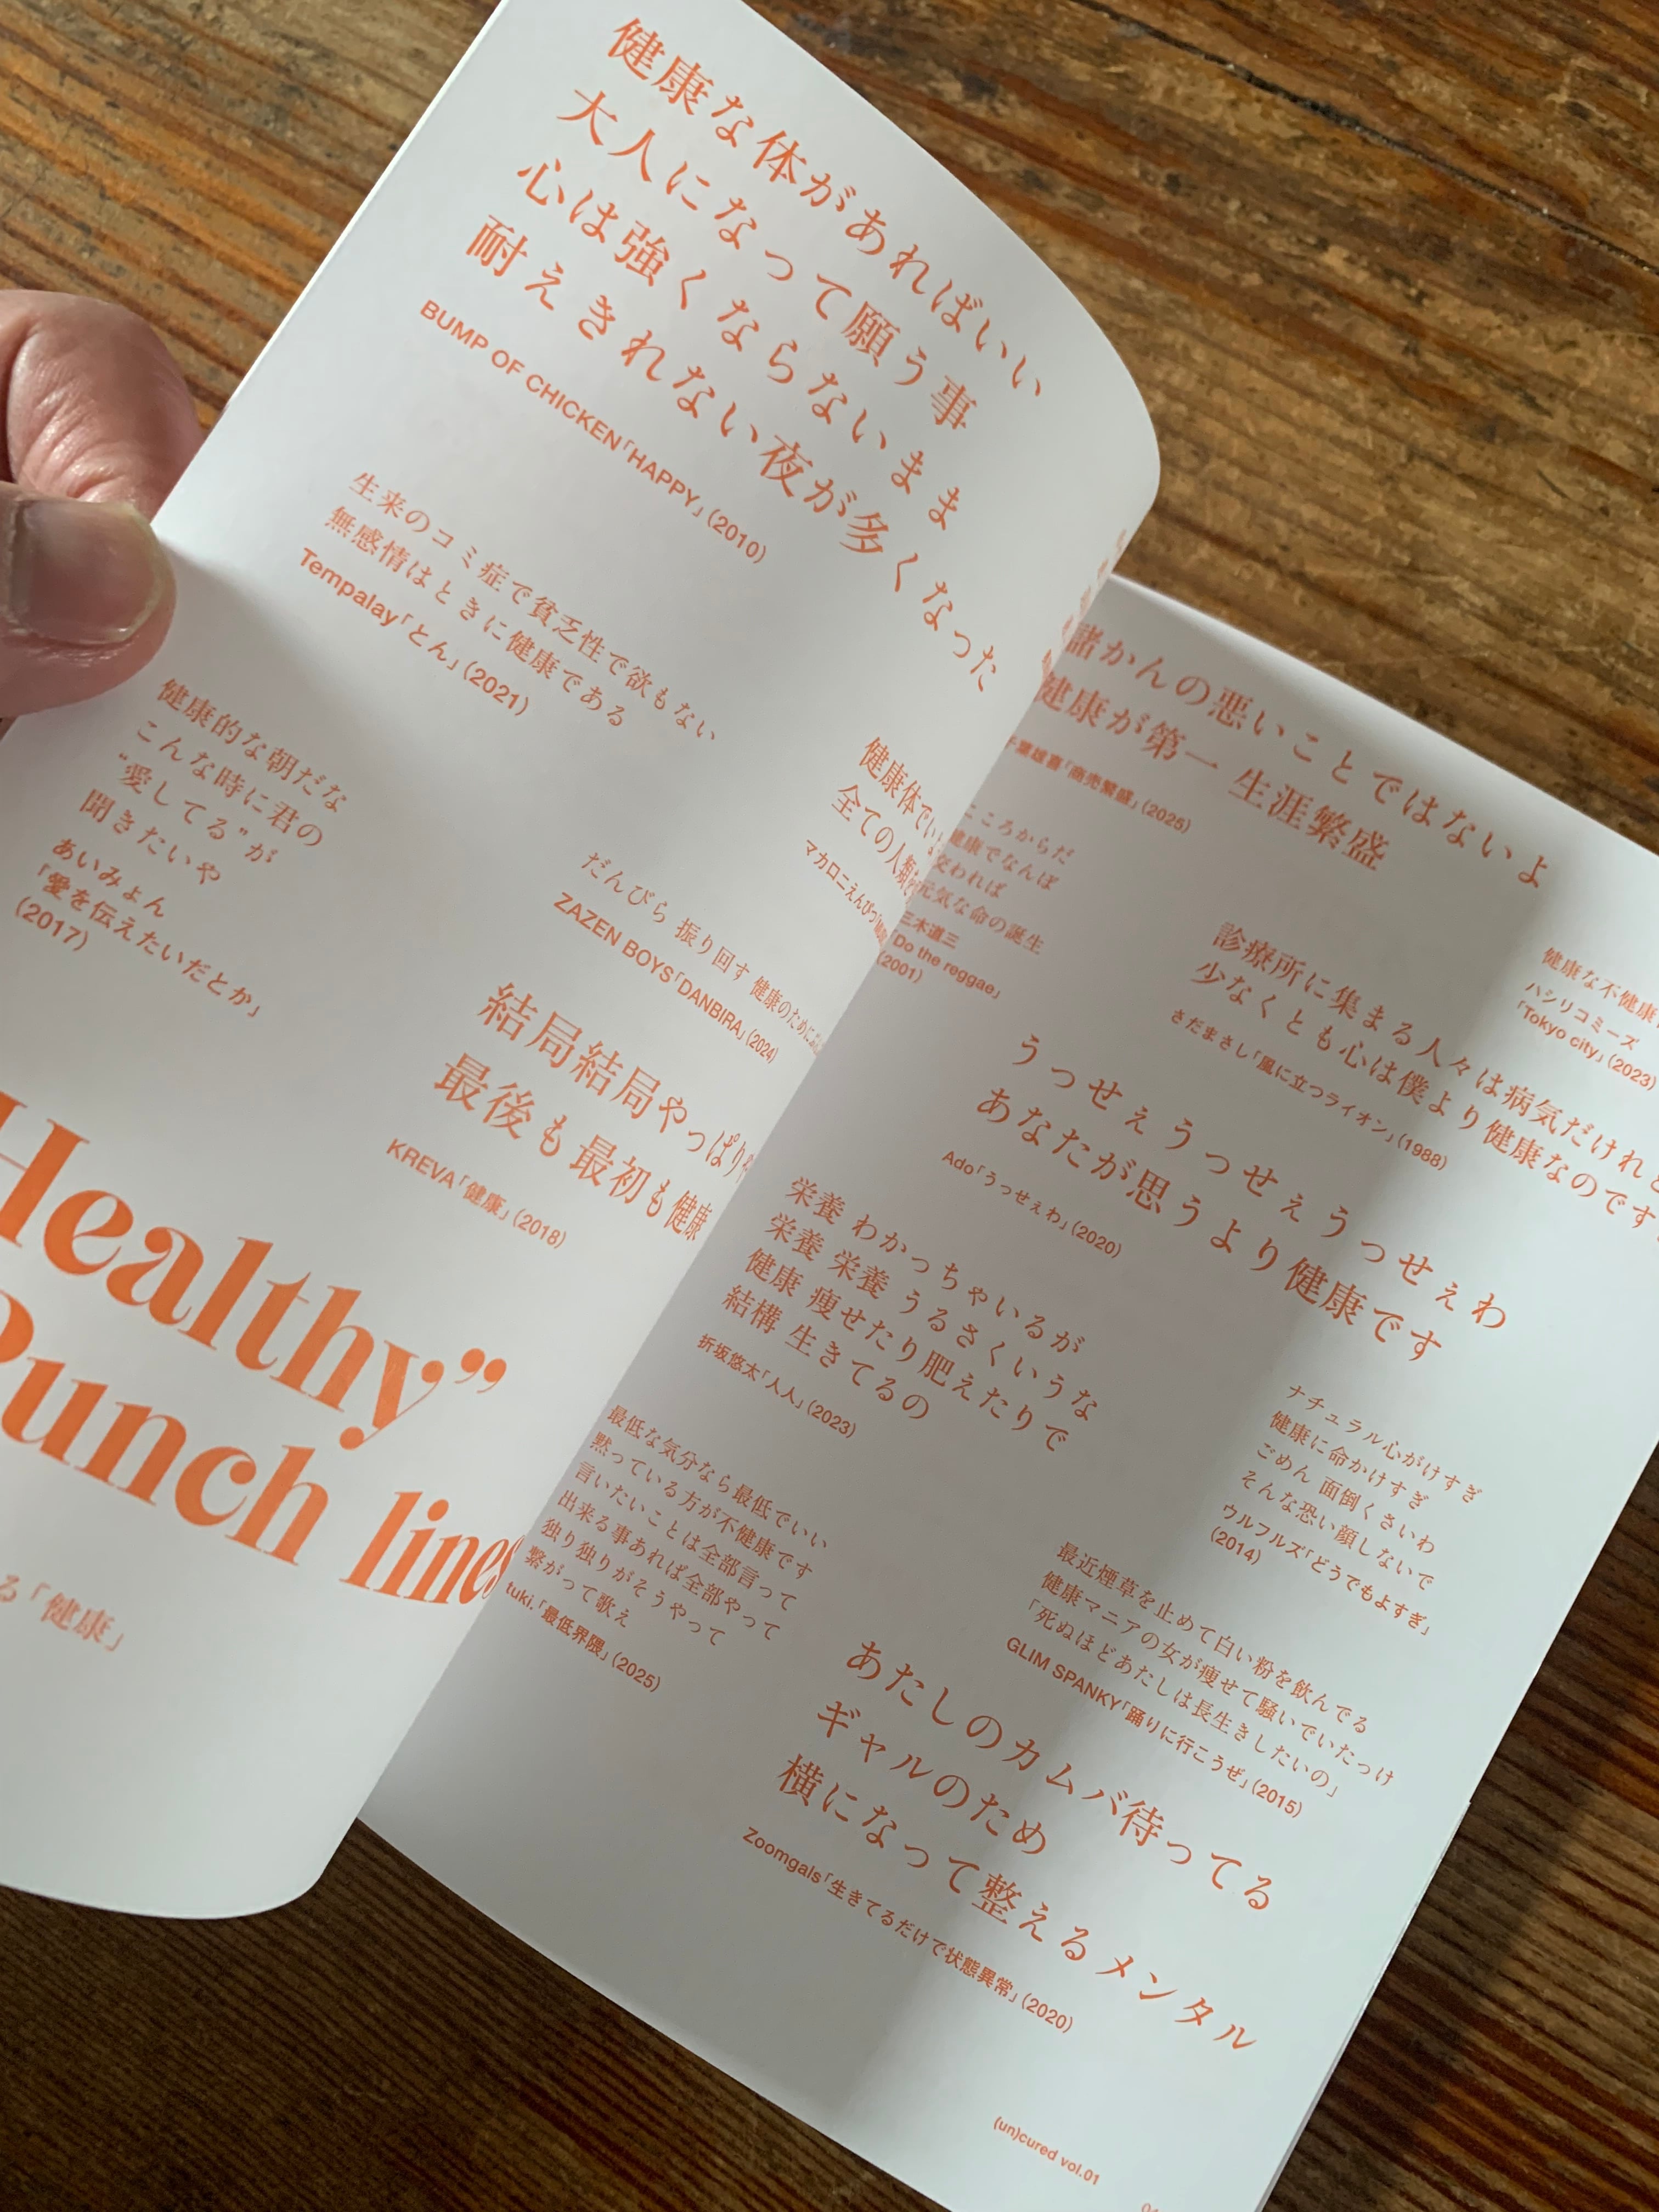 健康な体があればいい
大人になって願う事
心は強くならないまま
耐えきれない夜が多くなった
BUMP OF CHICKEN「HAPPY」(2010)
生来のコミ症で貧乏性で欲もない
無感情はときに健康である
Tempalay「とん」(2021)
健康的な朝だな
こんな時に君の
“愛してる”が
聞きたいや
あいみょん
「愛を伝えたいだとか」
(2017)
健康体でい
全ての人類
マカロニえんぴつ
だんびら 振り回す 健康のために
ZAZEN BOYS「DANBIRA」(2024)
結局結局やっぱり
最後も最初も健康
KREVA「健康」(2018)
Healthy”
Punch lines
る「健康」
諸かんの悪いことではないよ
健康が第一 生涯繁盛
千葉雄喜「商売繁盛」(2025)
こころからだ
健康でなんぼ
交われば
元気な命の誕生
三木道三
「Do the reggae」
(2001)
診療所に集まる人々は病気だけれど
少なくとも心は僕より健康なのです
さだまさし「風に立つライオン」(1988)
健康な不健康
ハシリコミーズ
「Tokyo city」(2023)
うっせぇうっせぇうっせぇわ
あなたが思うより健康です
Ado「うっせぇわ」(2020)
栄養 わかっちゃいるが
栄養 栄養 うるさくいうな
健康 痩せたり肥えたりで
結構 生きてるの
折坂悠太「人人」(2023)
ナチュラル心がけすぎ
健康に命かけすぎ
ごめん 面倒くさいわ
そんな恐い顔しないで
ウルフルズ「どうでもよすぎ」
(2014)
最低な気分なら最低でいい
黙っている方が不健康です
言いたいことは全部言って
出来る事あれば全部やって
独り独りがそうやって
繋がって歌え
tuki.「最低界隈」(2025)
最近煙草を止めて白い粉を飲んでる
健康マニアの女が痩せて騒いでいたっけ
「死ぬほどあたしは長生きしたいの」
GLIM SPANKY「踊りに行こうぜ」(2015)
あたしのカムバ待ってる
ギャルのため
横になって整えるメンタル
Zoomgals「生きてるだけで状態異常」(2020)
(un)cured vol.01